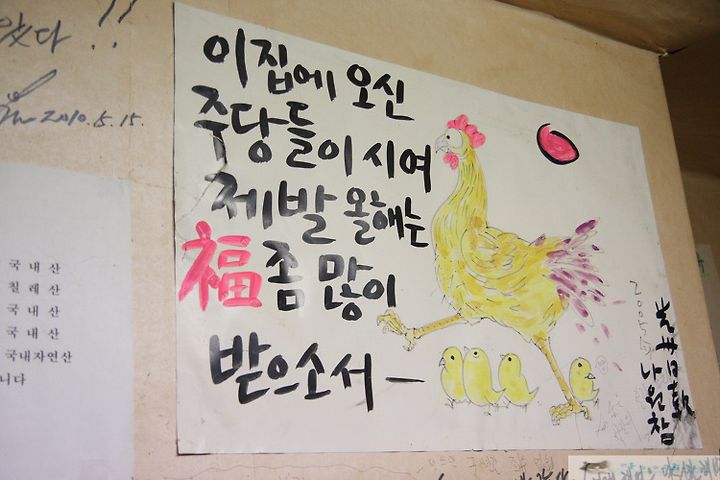 있다!!
2010.5.15.
국내산
칠레산
국내산
국내산
국내자연산
니다
이 집에 오신
주당들이시여
제발 올해는
福 좀 많이
받으소서-
2005
나원참